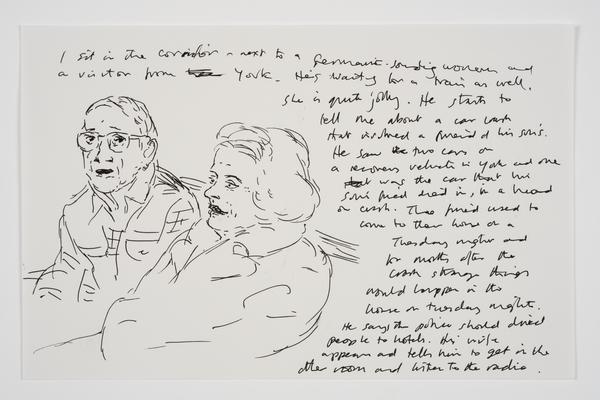 I sit in the corridor - next to a Germanic-sounding woman and
a visitor from York. He's waiting for a train as well.
She is quite jolly. He starts to
tell me about a car crash
that involved a friend of his son's.
He saw the two cars on
a recovery vehicle in York and one
was the car that his
son's friend died in, in a head
on crash. The friend used to
come to their house on a
Tuesday night and
for months after the
crash strange things
would happen in the
house on Tuesday night.
He says the police should direct
people to hotels. His wife
appears and tells him to get in the
other room and listen to the radio.